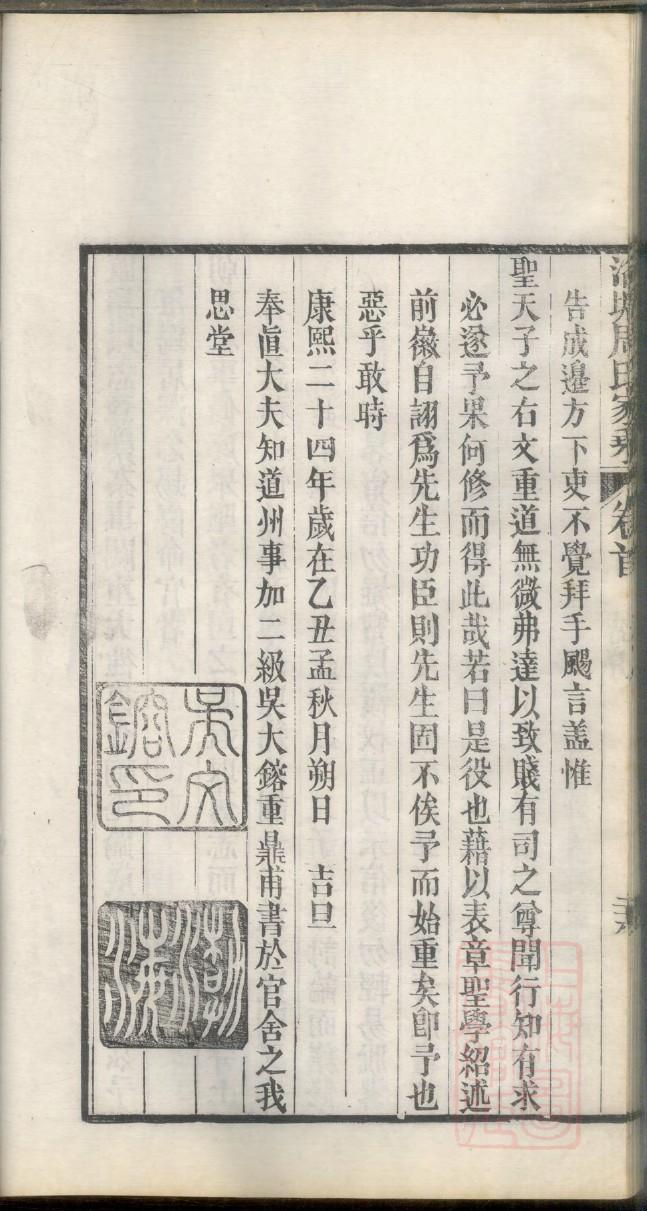 周氏家乘 卷首
告成邉方下吏不覺拜手颺言葢惟
聖天子之右文重道無微弗達以致賤有司之尊聞行知有求
必遂予果何修而得此哉若曰是役也藉以表章聖學紹述
前徽自詡爲先生功臣則先生固不俟予而始重矣卽予也
惡乎敢時
康熙二十四年歲在乙丑孟秋月朔日 吉旦
奉直大夫知道州事加二級吳大鎔重鼎甫書於官舍之我
思堂